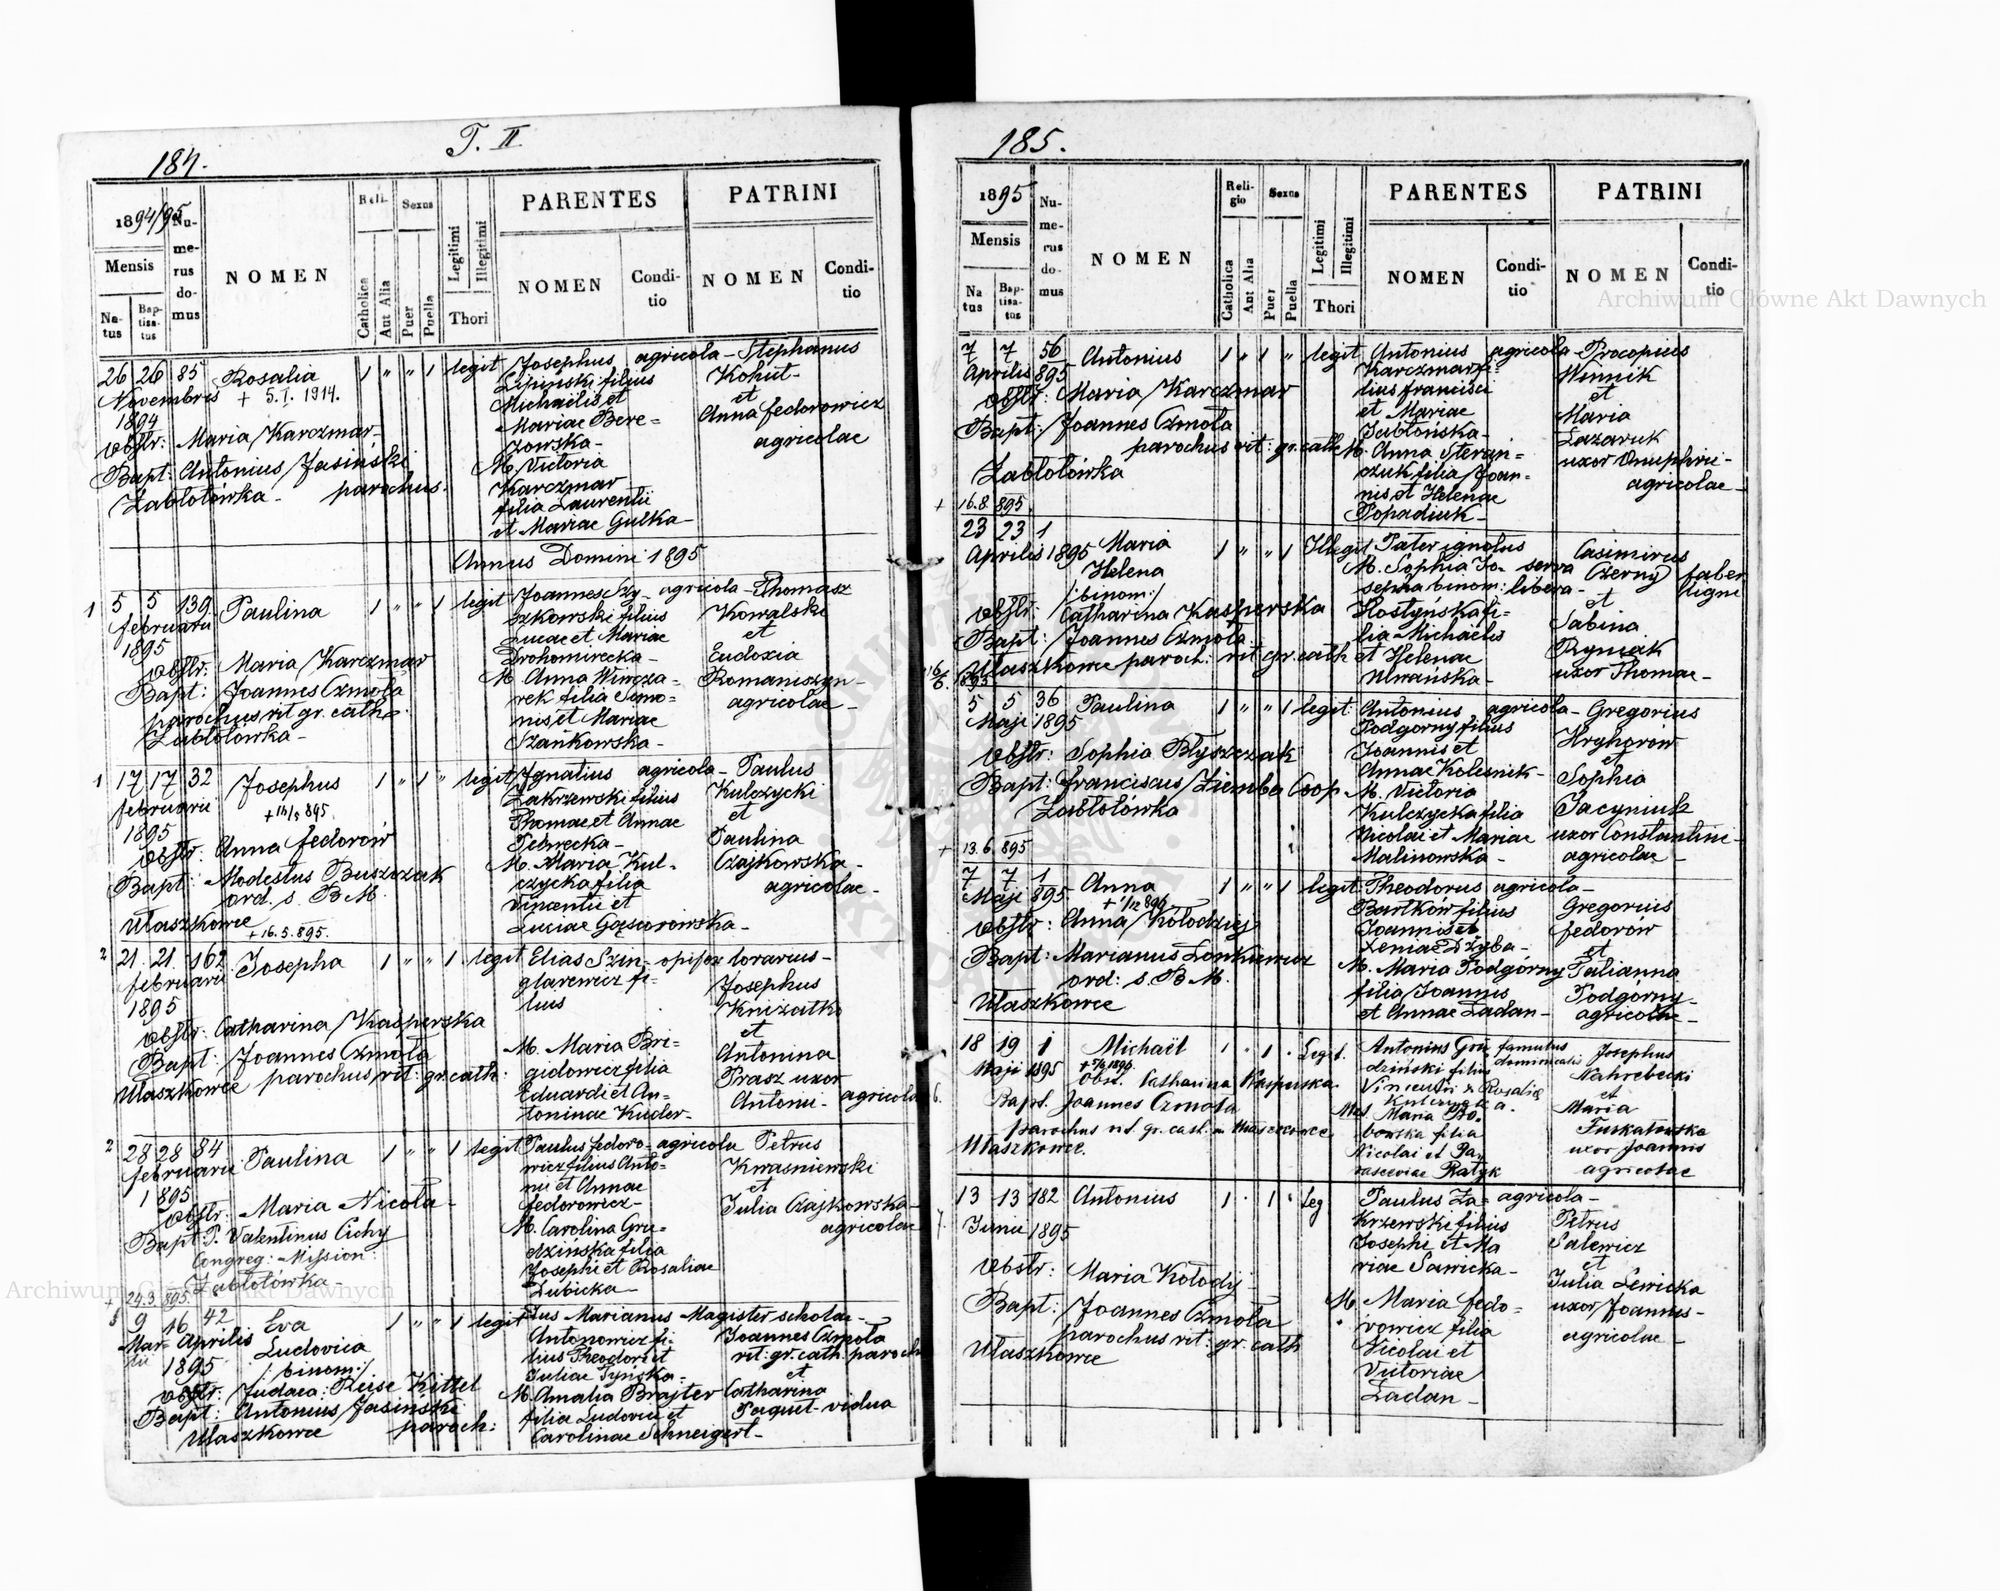 T. II
184.
1894/95
Mensis
Natus
Baptisatus
Numerus domus
NOMEN
Reli-
Catholica
Aut Alia
Sexus
Puer
Puella
Legitimi
Illegitimi
Thori
PARENTES
NOMEN
Conditio
PATRINI
NOMEN
Conditio
26 26 85 Rosalia 1 " " 1 legit Josephus agricola - Stephanus
Novembris + 5.I.1914. Lipiński filius Kohut -
1894 Michaelis et et
Obstr: Maria Karczmar Mariae Bere= Anna Fedorowicz
zowska - agricolae
Bapt: Antonius Jasiński M. Victoria
Zabłotówka - parochus. Karczmar
filia Laurentii
et Mariae Gułka -
Annus Domini 1895
1 5 5 139 Paulina 1 " " 1 legit Joannes Szy- agricola - Thomasz
februarii szkowski filius Kowalski
1895 Lucae et Mariae et
Obstr: Maria Karczmar Drohomirecka - Eudoxia
Bapt: Joannes Czmoła M. Anna Wincza= Romaniszyn -
parochus rit gr. cath. rek filia Simo= agricolae -
Zabłotówka - nis et Mariae
Szańkowska -
1 17 17 32 Josephus 1 " 1 " legit Ignatius agricola - Paulus
februarii Zakrzewski filius Kulczycki
1895 Thomae et Annae et
Obstr: Anna Fedorów Paulina
M. Maria Kul- Czajkowska -
Bapt: Modestus Buszczak czycka filia agricolae -
ord. s. B M. Vincentii et
Ułaszkowce + 16.5.895. Luciae Gąsiorowska -
2 21. 21. 162 Josepha 1 " " 1 legit Elias Szin- opifex lorarius -
februarii glarewicz fi= Josephus
1895 lius Kniżatko
Obstr: Catharina Kasperska et
Bapt: Joannes Czmoła M. Maria Bri= Antonina
Ułaszkowce parochus rit: gr. cath: gidowicz filia Prasz uxor
Eduardi et An= Antonii - agricola
toninae Kuder-
2 28 28 84 Paulina 1 " " 1 legit Paulus Fedoro= agricola Petrus
februarii wicz filius Anto= Kwasniewski
1895 nii et Annae et
Obstr: Maria Nicoła - Fedorowicz - Julia Czajkowska -
Bapt P. Valentinus Cichy M. Carolina Gru= agricolae
Congreg: Mission dzińska filia
Zabłotówka - Josephi et Rosaliae
+ 24.3.895. Lubicka -
9 16 42 Eva 1 " " 1 legit Marianus Magister scholae -
Martii Aprilis Ludovica Antonowicz fi= Joannes Czmoła
1895 /:binom:/ lius Theodori et rit: gr. cath. paroch
Obstr: Judaea: Reise Kittel Juliae Tyńska - et
Bapt: Antonius Jasiński M. Amalia Brajter Catharina
Ułaszkowce paroch: filia Ludovici et Paquet - vidua
Carolinae Schneigert -
185.
1895
Mensis
Natus
Baptisatus
Numerus domus
NOMEN
Religio
Catholica
Aut Alia
Sexus
Puer
Puella
Legitimi
Illegitimi
Thori
PARENTES
NOMEN
Conditio
PATRINI
NOMEN
Conditio
7 7 56 Antonius 1 " 1 " legit Antonius agricola - Procopius
Aprilis 895 Karczmar fi- Winnik
Obstr: Maria Karczmar lius Francisci et
Bapt: Joannes Czmoła et Mariae Maria
parochus rit: gr. cath Jabłońska - Łazaruk
Zabłotówka M. Anna Stefan- uxor Onuphrii -
czuk filia Joan- agricolae -
+ 16.8.895 nis et Helenae
Popadiuk -
23 23 1 Maria 1 " " 1 Illegit Pater ignotus Casimirus
Aprilis 1895 Helena M. Sophia Jo- serva Czerny faber
/:binom:/ sepha binom: libera - et ligni
Obstr: Catharina Kasperska Kostyńska fi- Sabina
Bapt: Joannes Czmoła lia Michaelis Ryniak
Ułaszkowce paroch: rit gr. cath et Helenae uxor Thomae -
Ulwańska -
5 5 36 Paulina 1 " " 1 legit Antonius agricola - Gregorius
Maji 1895 Podgorny filius Hryhorow
Obstr: Sophia Błyszczak Joannis et et
Annae Kolesnik - Sophia
Bapt: Franciscus Ziemba Coop M. Victoria Jacyniuk
Zabłotówka Kulczycka filia uxor Constantini -
Nicolai et Mariae agricolae -
+ 13.6.895 Malinowska -
7 7 1 Anna 1 " " 1 legit Theodorus agricola -
Maji 895 Bartków filius Gregorius
Obstr: Anna Kołodziej Joannis et Fedorów
Xeniae Dżyba - et
Bapt: Marianus Lonkiewicz M. Maria Podgórny Julianna
ord: s. B M. filia Joannis Podgórny -
Ułaszkowce et Annae Zadan - agricolae -
18 19 1 Michaël 1 " 1 " Legit. Antonius Gru- famulus Josephus
Maji 1895 dziński filius dominicalis Nahrebecki
Obst. Catharina Kasperska. Vincentii & Rosaliae et
Bapt. Joannes Czmoła Maria
parochus rit. gr. cath. in Ułaszkowce Mat. Maria Bo- Fuskatowska
Ułaszkowce. bowska filia uxor Joannis
Nicolai et Pa- agricolae
rasceviae Ratyk
13 13 182 Antonius 1 " 1 " Leg Paulus Za- agricola -
Junii 1895 krzewski filius Petrus
Josephi et Ma Salewicz
Obstr: Maria Kołodij - riae Sawicka - et
Julia Lewicka
Bapt: Joannes Czmoła M. Maria Fedo= uxor Joannes -
parochus rit: gr. cath rowicz filia agricolae -
Ułaszkowce Nicolai et
Victoriae
Zadan -
Archiwum Główne Akt Dawnych
Archiwum Główne Akt Dawnych